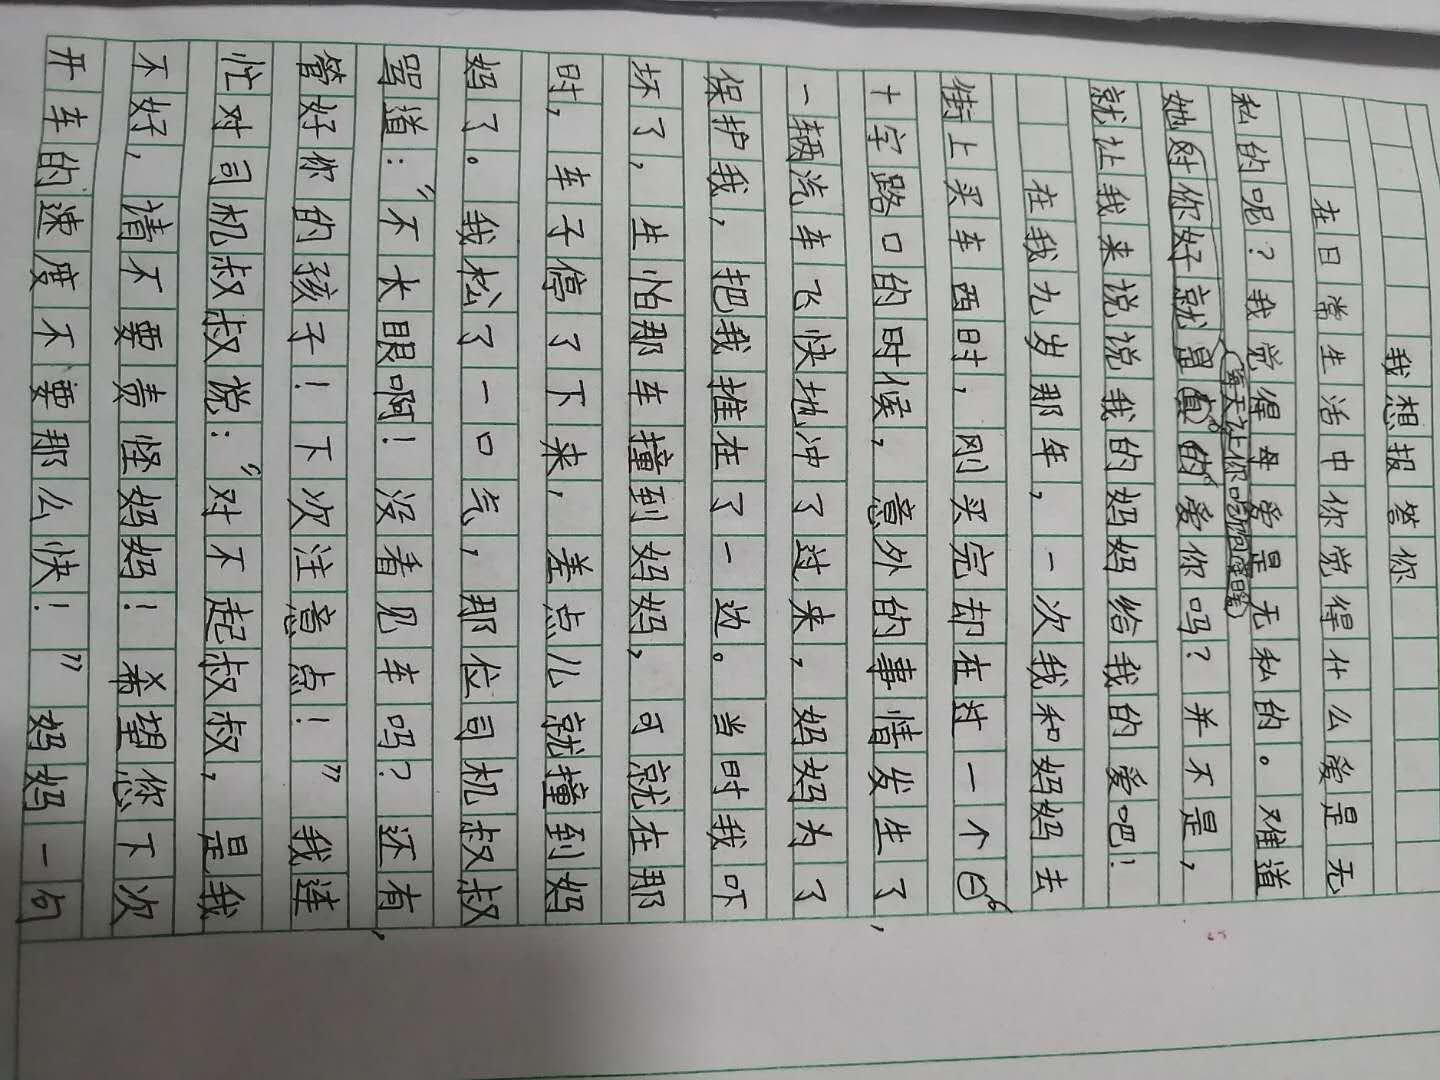 我想报答你
在日常生活中你觉得什么爱是无
私的呢？我觉得母爱是无私的。难道
每天让你吃饱穿暖
她对你好就是真的爱你吗？并不是，
就让我来说说我的妈妈给我的爱吧！
在我九岁那年，一次我和妈妈去
街上买车西时，刚买完却在过一个
十字路口的时候，意外的事情发生了，
一辆汽车飞快地冲了过来，妈妈为了
保护我，把我推在了一边。当时我吓
坏了，生怕那车撞到妈妈，可就在那
时，车子停了下来，差点儿就撞到妈
妈了。我松了一口气，那位司机叔叔
骂道：“不长眼啊！没看见车吗？还有，
管好你的孩子！下次注意点！”我连
忙对司机叔叔说：“对不起叔叔，是我
不好，请不要责怪妈妈！希望您下次
开车的速度不要那么快！”妈妈一句